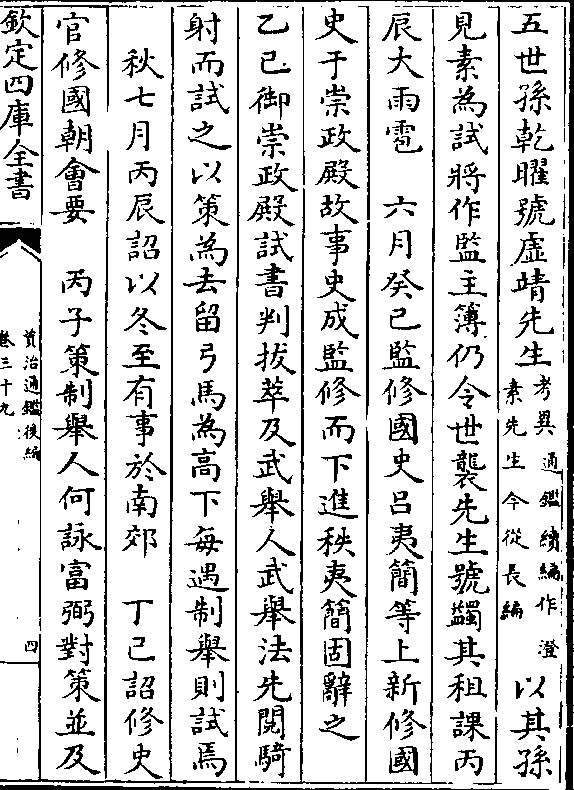 五世孫乾曜號虛靖先生考異通鑑續編作澄素先生今從長編以其孫
見素為試將作監主簿仍令世襲先生號蠲其租課丙
辰大雨雹　六月癸巳監修國史呂夷簡等上新修國
史于崇政殿故事史成監修而下進秩夷簡固辭之
乙巳御崇政殿試書判拔萃及武舉人武舉法先閱騎
射而試之以策為去留弓馬為高下每遇制舉則試焉
秋七月丙辰詔以冬至有事於南郊　丁巳詔修史
官修國朝會要　丙子策制舉人何詠富弼對策並及
欽定四庫全書
資治通鑑後編
卷三十九
四